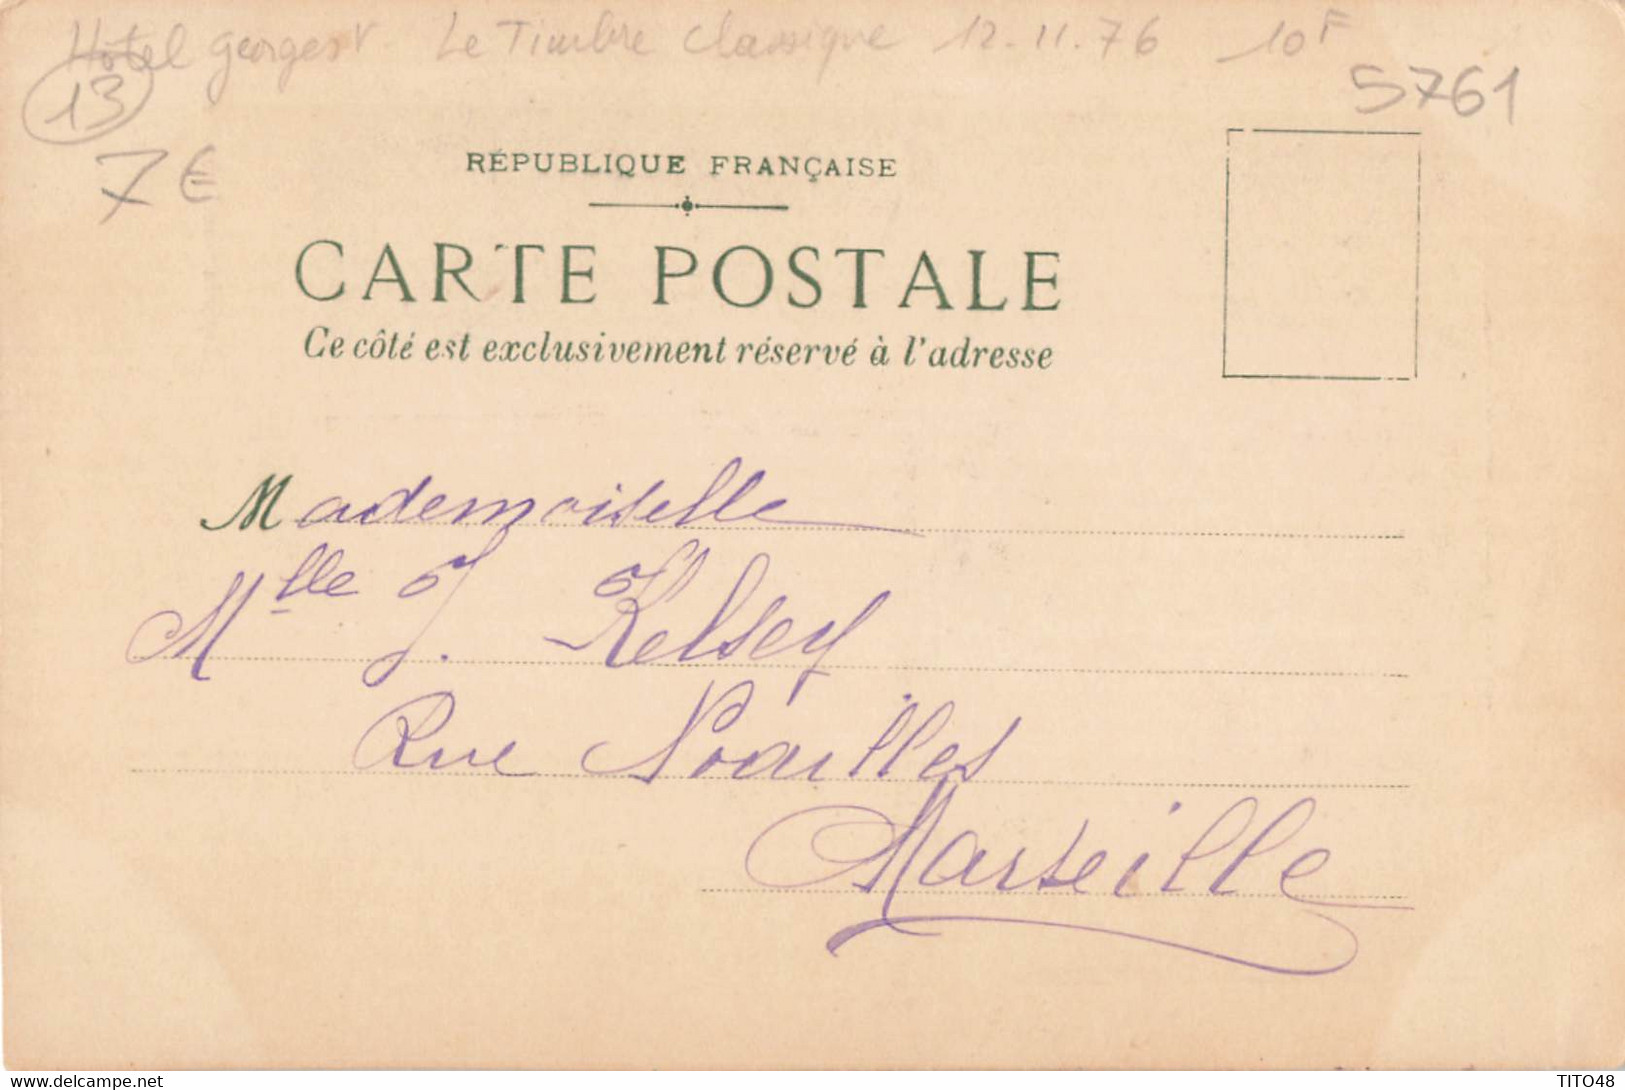 Hôtel Georges V Le Timbre Classique 12.11.76 10F
13
5761
7€
RÉPUBLIQUE FRANÇAISE
CARTE POSTALE
Ce côté est exclusivement réservé à l'adresse
Mademoiselle
Mlle J. Kelsey
Rue Noailles
Marseille
delcampe.net
TITO48